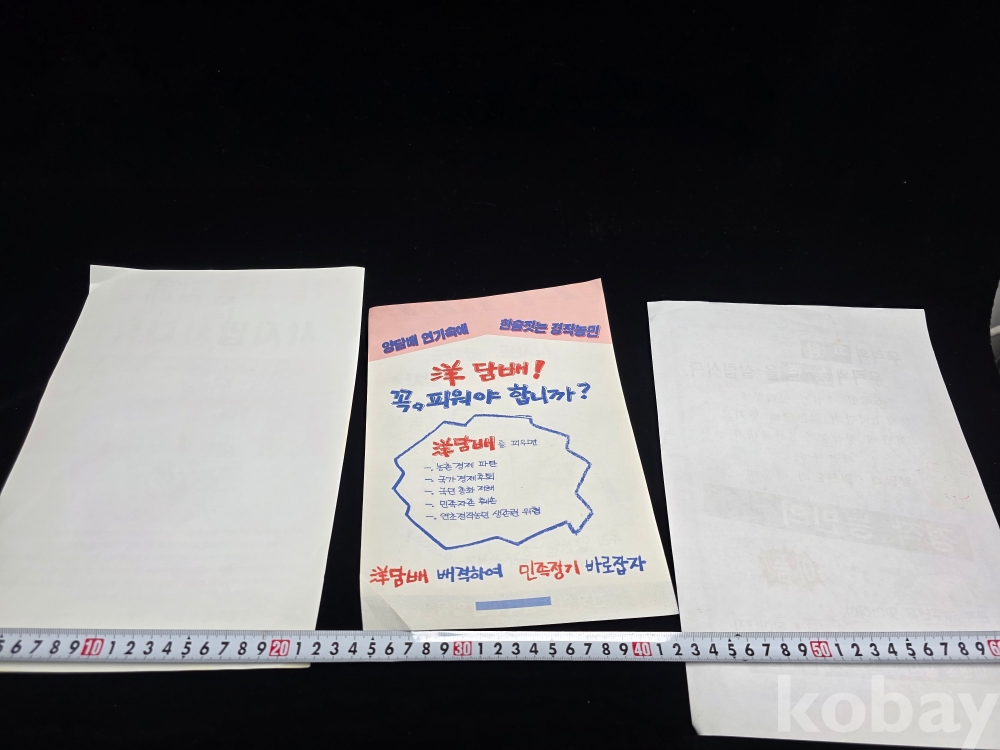 양담배 연기속에 한숨짓는 경작농민
洋담배!
꼭, 피워야 합니까?
洋담배를 피우면
一. 농촌경제 파탄
一. 국가경제후퇴
一. 국민총화 저해
一. 민족자존 훼손
一. 연초경작농민 생존권 위협
洋담배 배격하여 민족정기 바로잡자
5 6 7 8 9 10 1 2 3 4 5 6 7 8 9 20 1 2 3 4 5 6 7 8 9 30 1 2 3 4 5 6 7 8 9 40 1 2 3 4 5 6 7 8 9 50 1 2 3 4 5 6 7 8 9 60
kobay